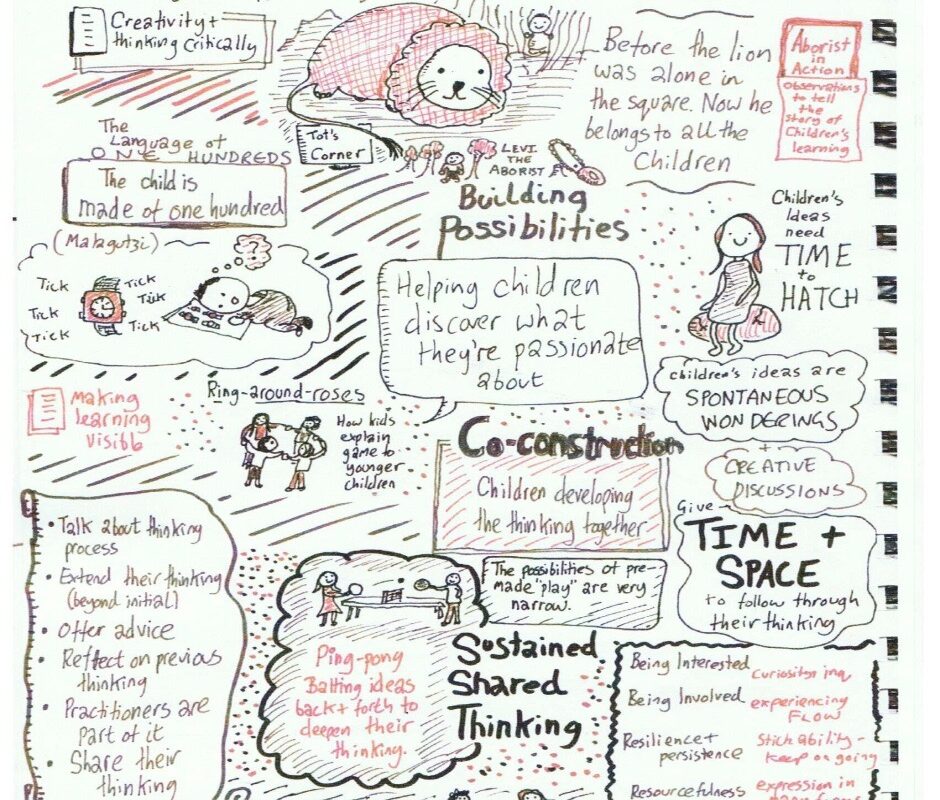 Creativity +
thinking critically
Before the lion
was alone in
the square. Now he
belongs to all the
Children
Aborist
in
Action
Observations
to tell
the
story of
Children's
learning
Tot's
Corner
LEVI
THE
ABORIST
The
Language of
ONE HUNDREDS
The child is
made of one hundred
(Malagutzi)
Tick
Tick
Tick
Tick
Tick
Tick
Building
Possibilities
Helping children
discover what
they're passionate
about
Children's
Ideas
need
TIME
to
HATCH
children's ideas are
SPONTANEOUS
WONDERINGS
+
CREATIVE
DISCUSSIONS
Give
TIME +
SPACE
to follow through
their thinking
Making
learning
visible
Ring-around-roses
How kids
explain
game to
younger
children
Co-construction
Children developing
the thinking together
The possibilities of pre-
made "play" are very
narrow.
• Talk about thinking
process
• Extend their thinking
(beyond initial)
• Offer advice
• Reflect on previous
thinking
• Practitioners are
part of it
• Share their
thinking
Ping-pong
Batting ideas
back + forth to
deepen their
thinking.
Sustained
Shared
Thinking
Being Interested
Curiosity
Being Involved
experiencing
FLOW
Resilience +
persistence
Stickability -
keep on going
Resourcefulness
expression in